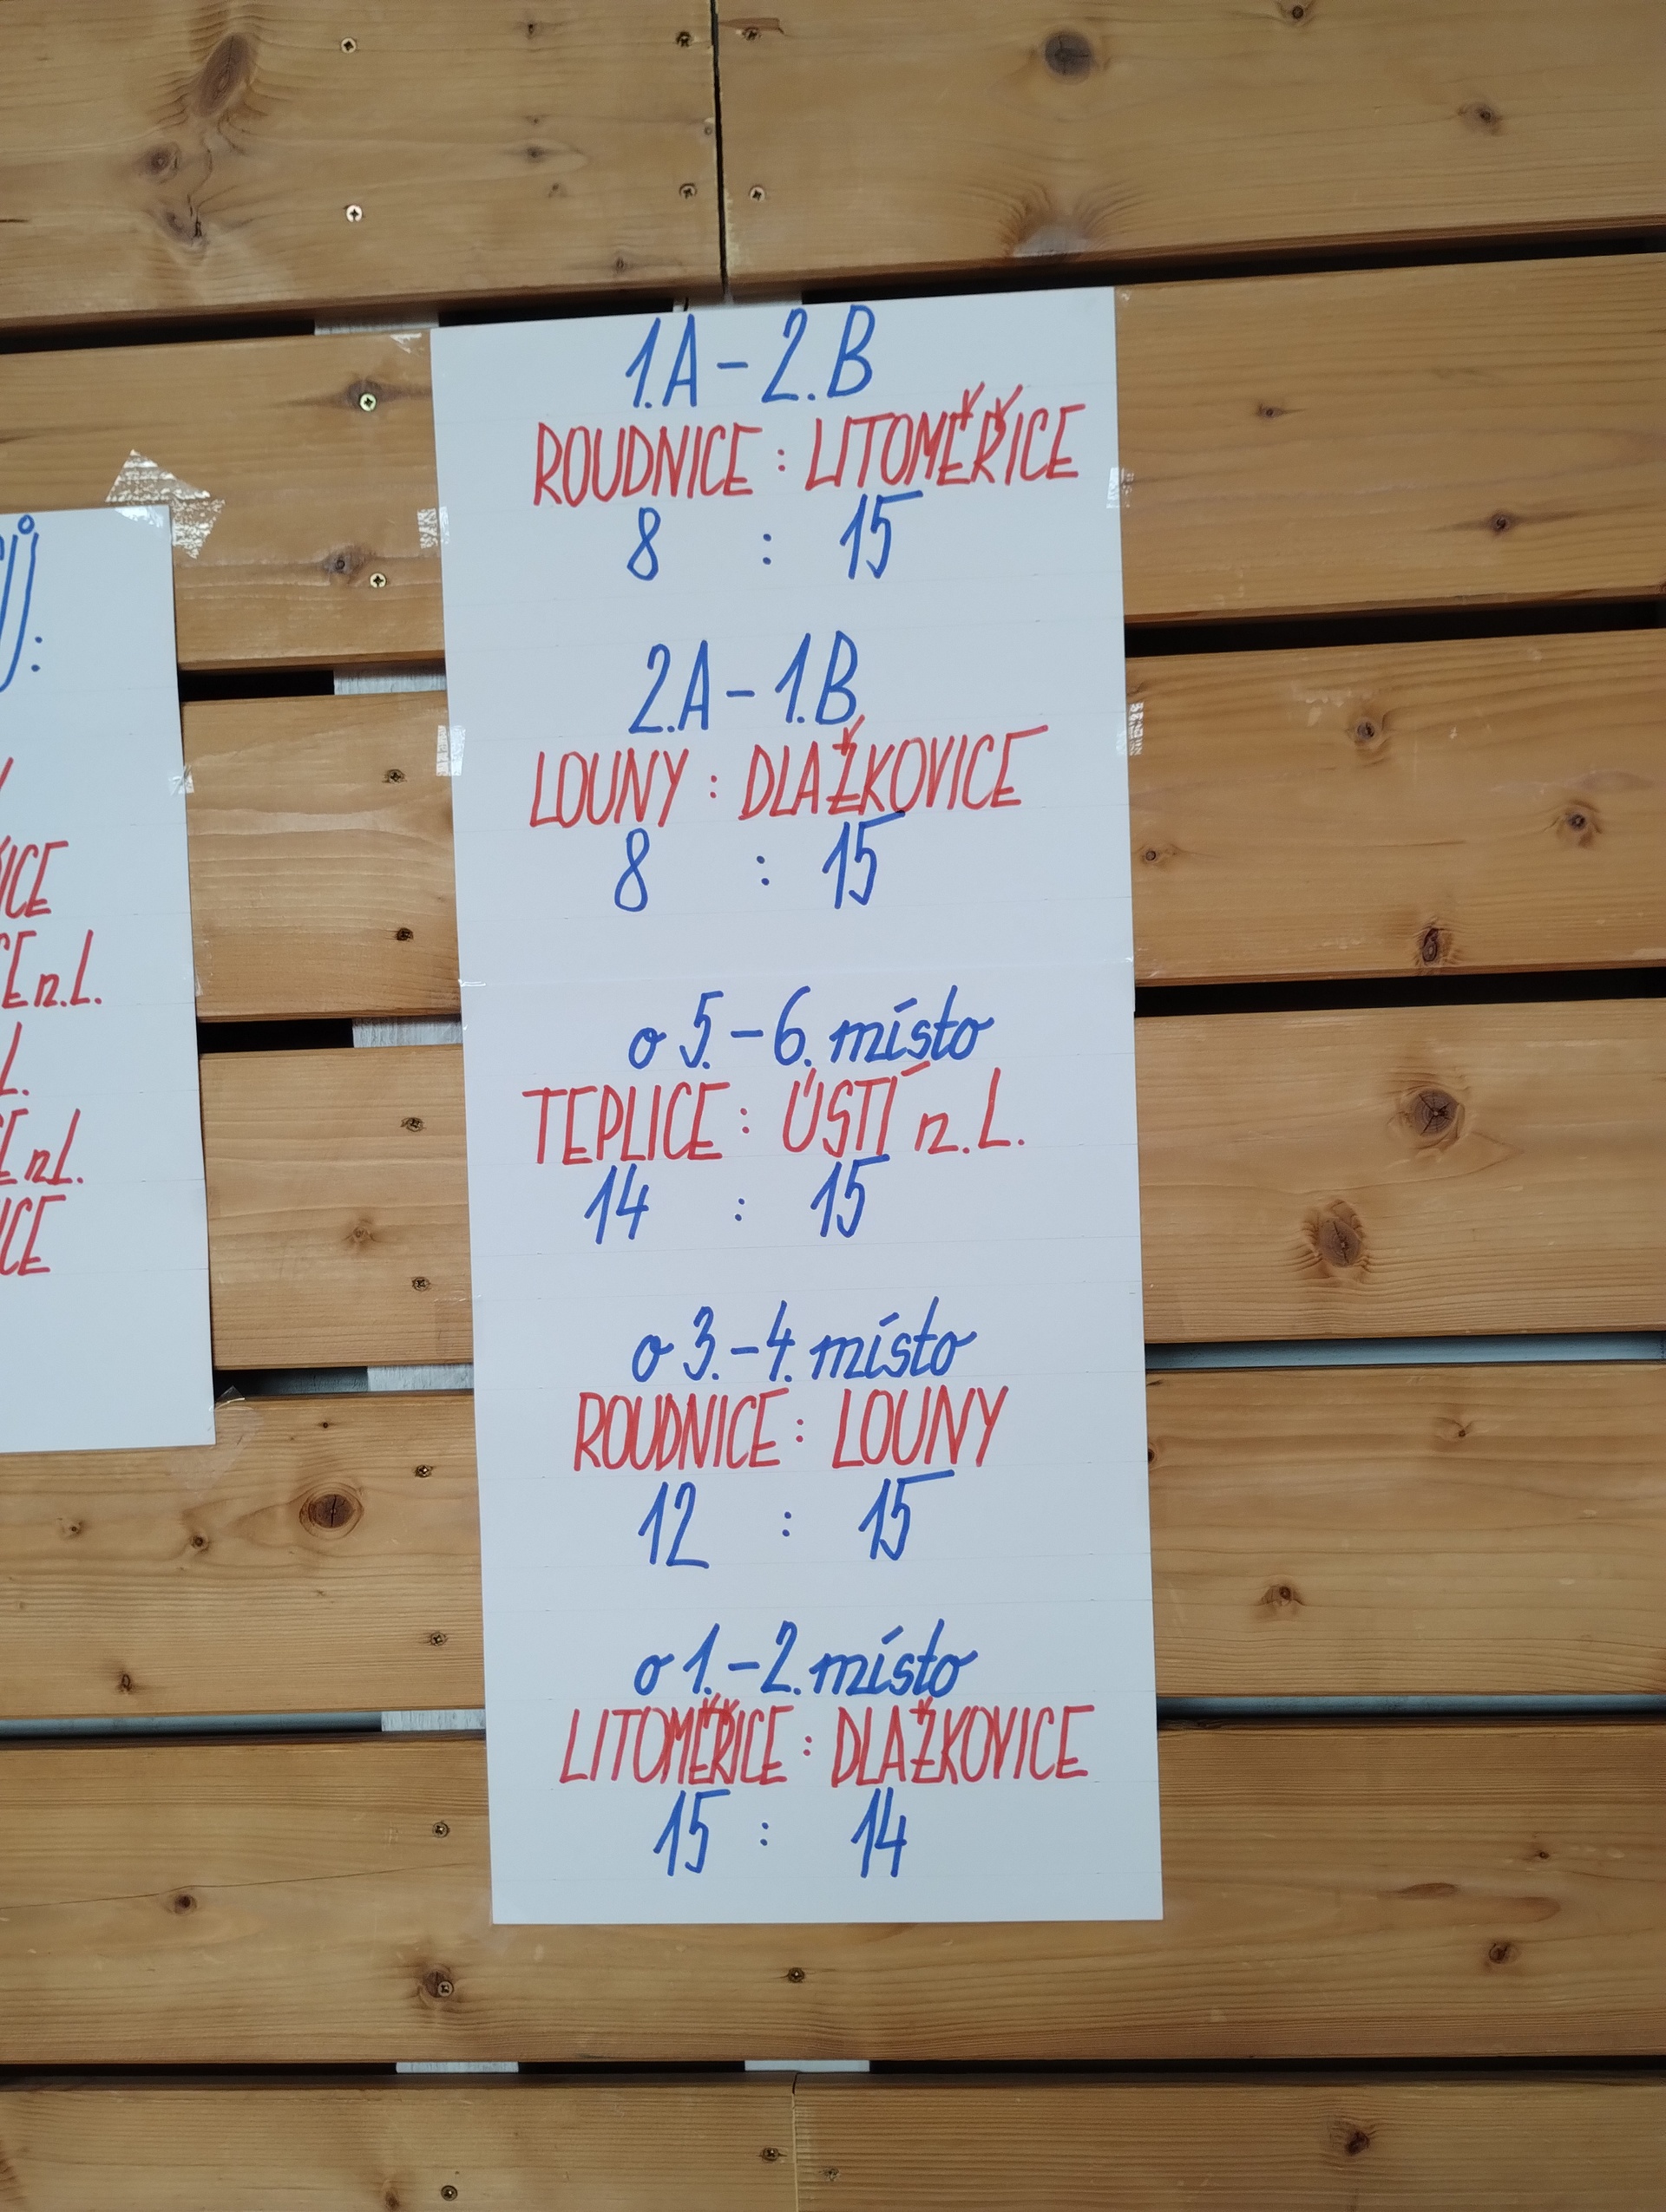 1.A – 2.B
ROUDNICE : LITOMĚŘICE
8 : 15
2.A – 1.B
LOUNY : DLAŽKOVICE
8 : 15
o 5. – 6. místo
TEPLICE : ÚSTÍ n.L.
14 : 15
o 3. – 4. místo
ROUDNICE : LOUNY
12 : 15
o 1. – 2. místo
LITOMĚŘICE : DLAŽKOVICE
15 : 14
n.L.
L.
n.L.